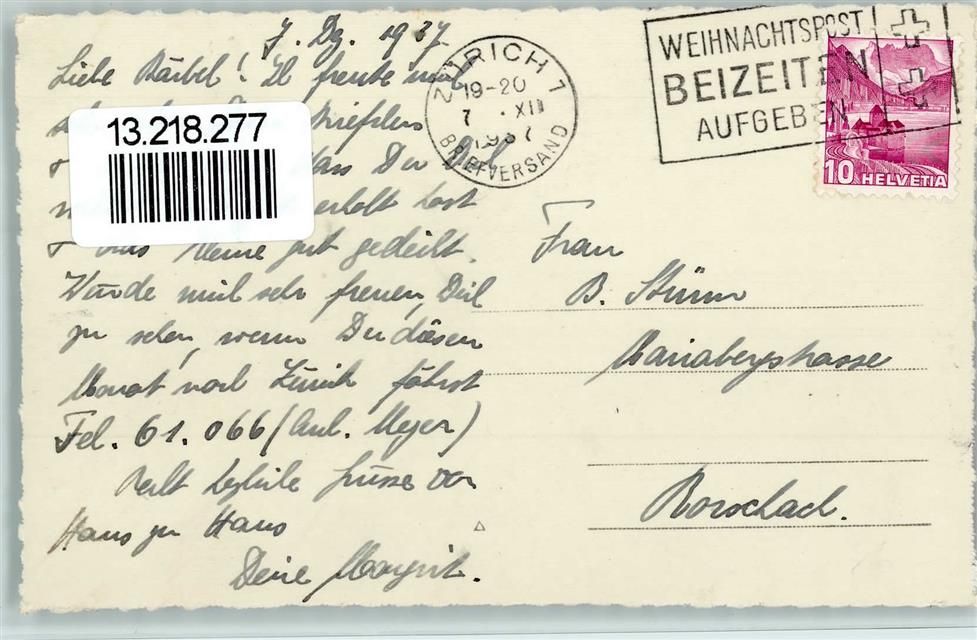 7. Dz. 1937
Liebe Bärbel! Es freute mich
13.218.277
dass Du Dich
erholt hast
+ das Kleine gut gedeiht.
Würde mich sehr freuen, Dich
zu sehen, wenn Du diesen
Monat nach Zürich fährst
Tel. 61.066 (Anl. Meyer)
Recht herzliche Grüsse von
Haus zu Haus
Deine Margrit.
ZÜRICH 1
19-20
7. XII
1937
BRIEFVERSAND
WEIHNACHTSPOST
BEIZEITEN
AUFGEBEN
10 HELVETIA
Frau
B. Stürm
Mariabergstrasse
Rorschach.